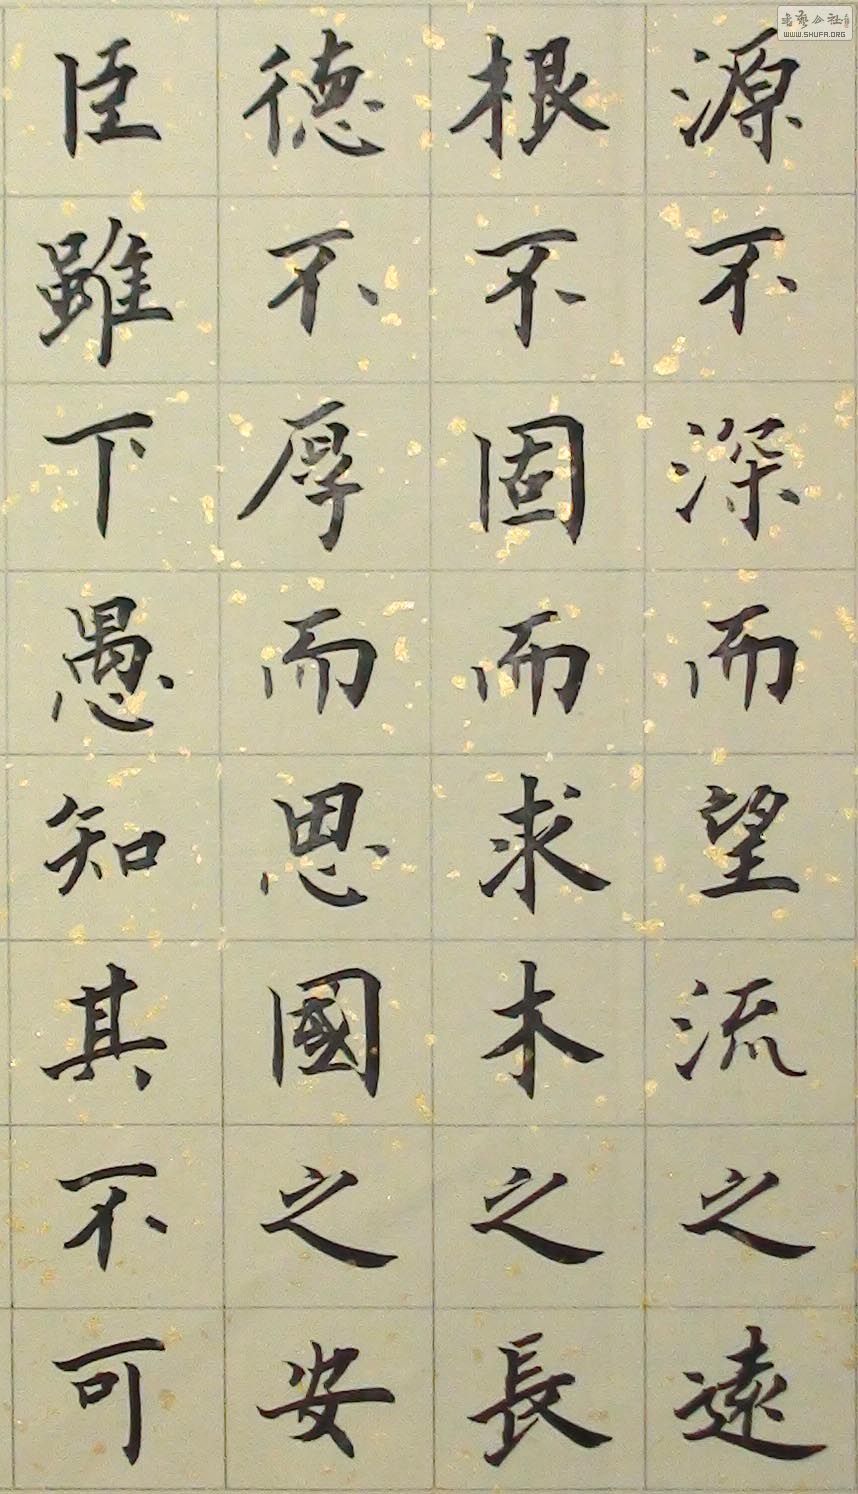 源不深而望流之遠
根不固而求木之長
德不厚而思國之安
臣雖下愚知其不可
书艺公社
WWW.SHUFA.ORG